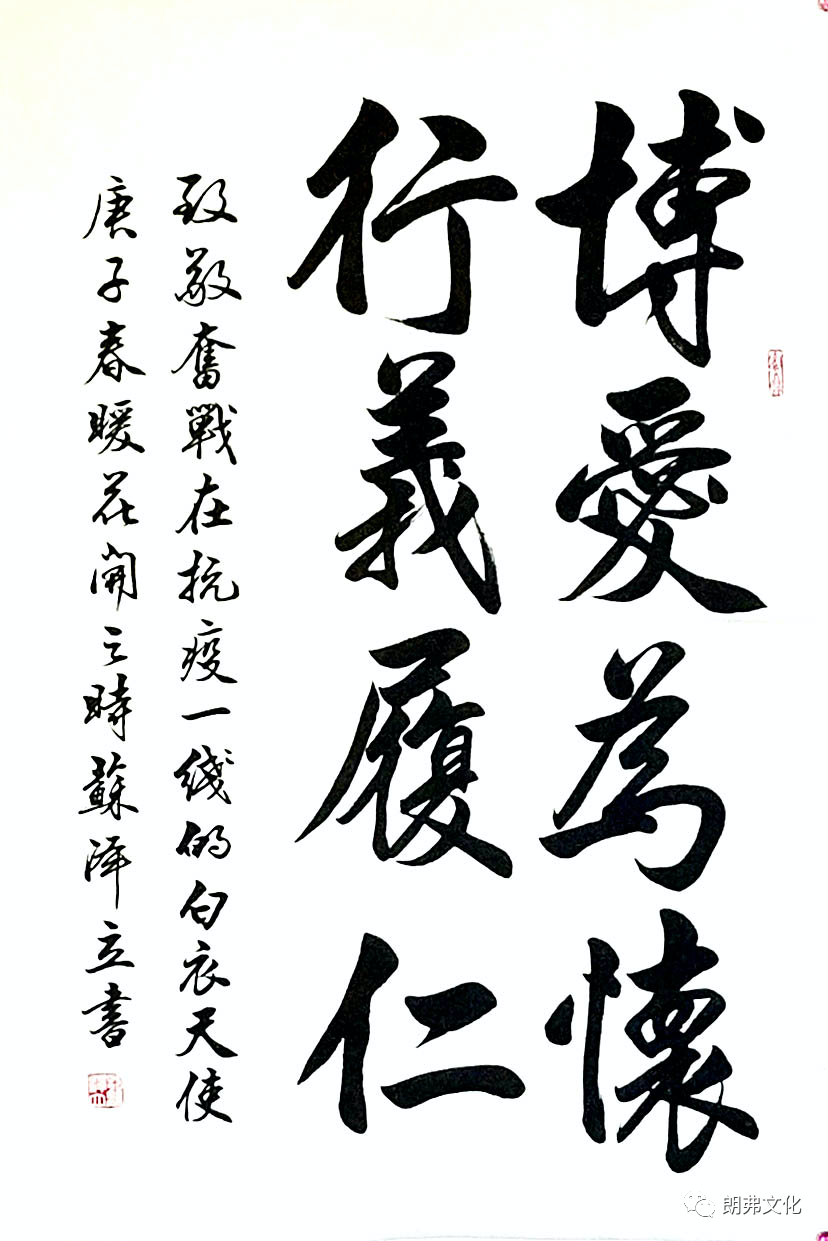 博愛為懷
行義履仁
致敬奮戰在抗疫一线的白衣天使
庚子春暖花開之時蘇泽立書
朗弗文化